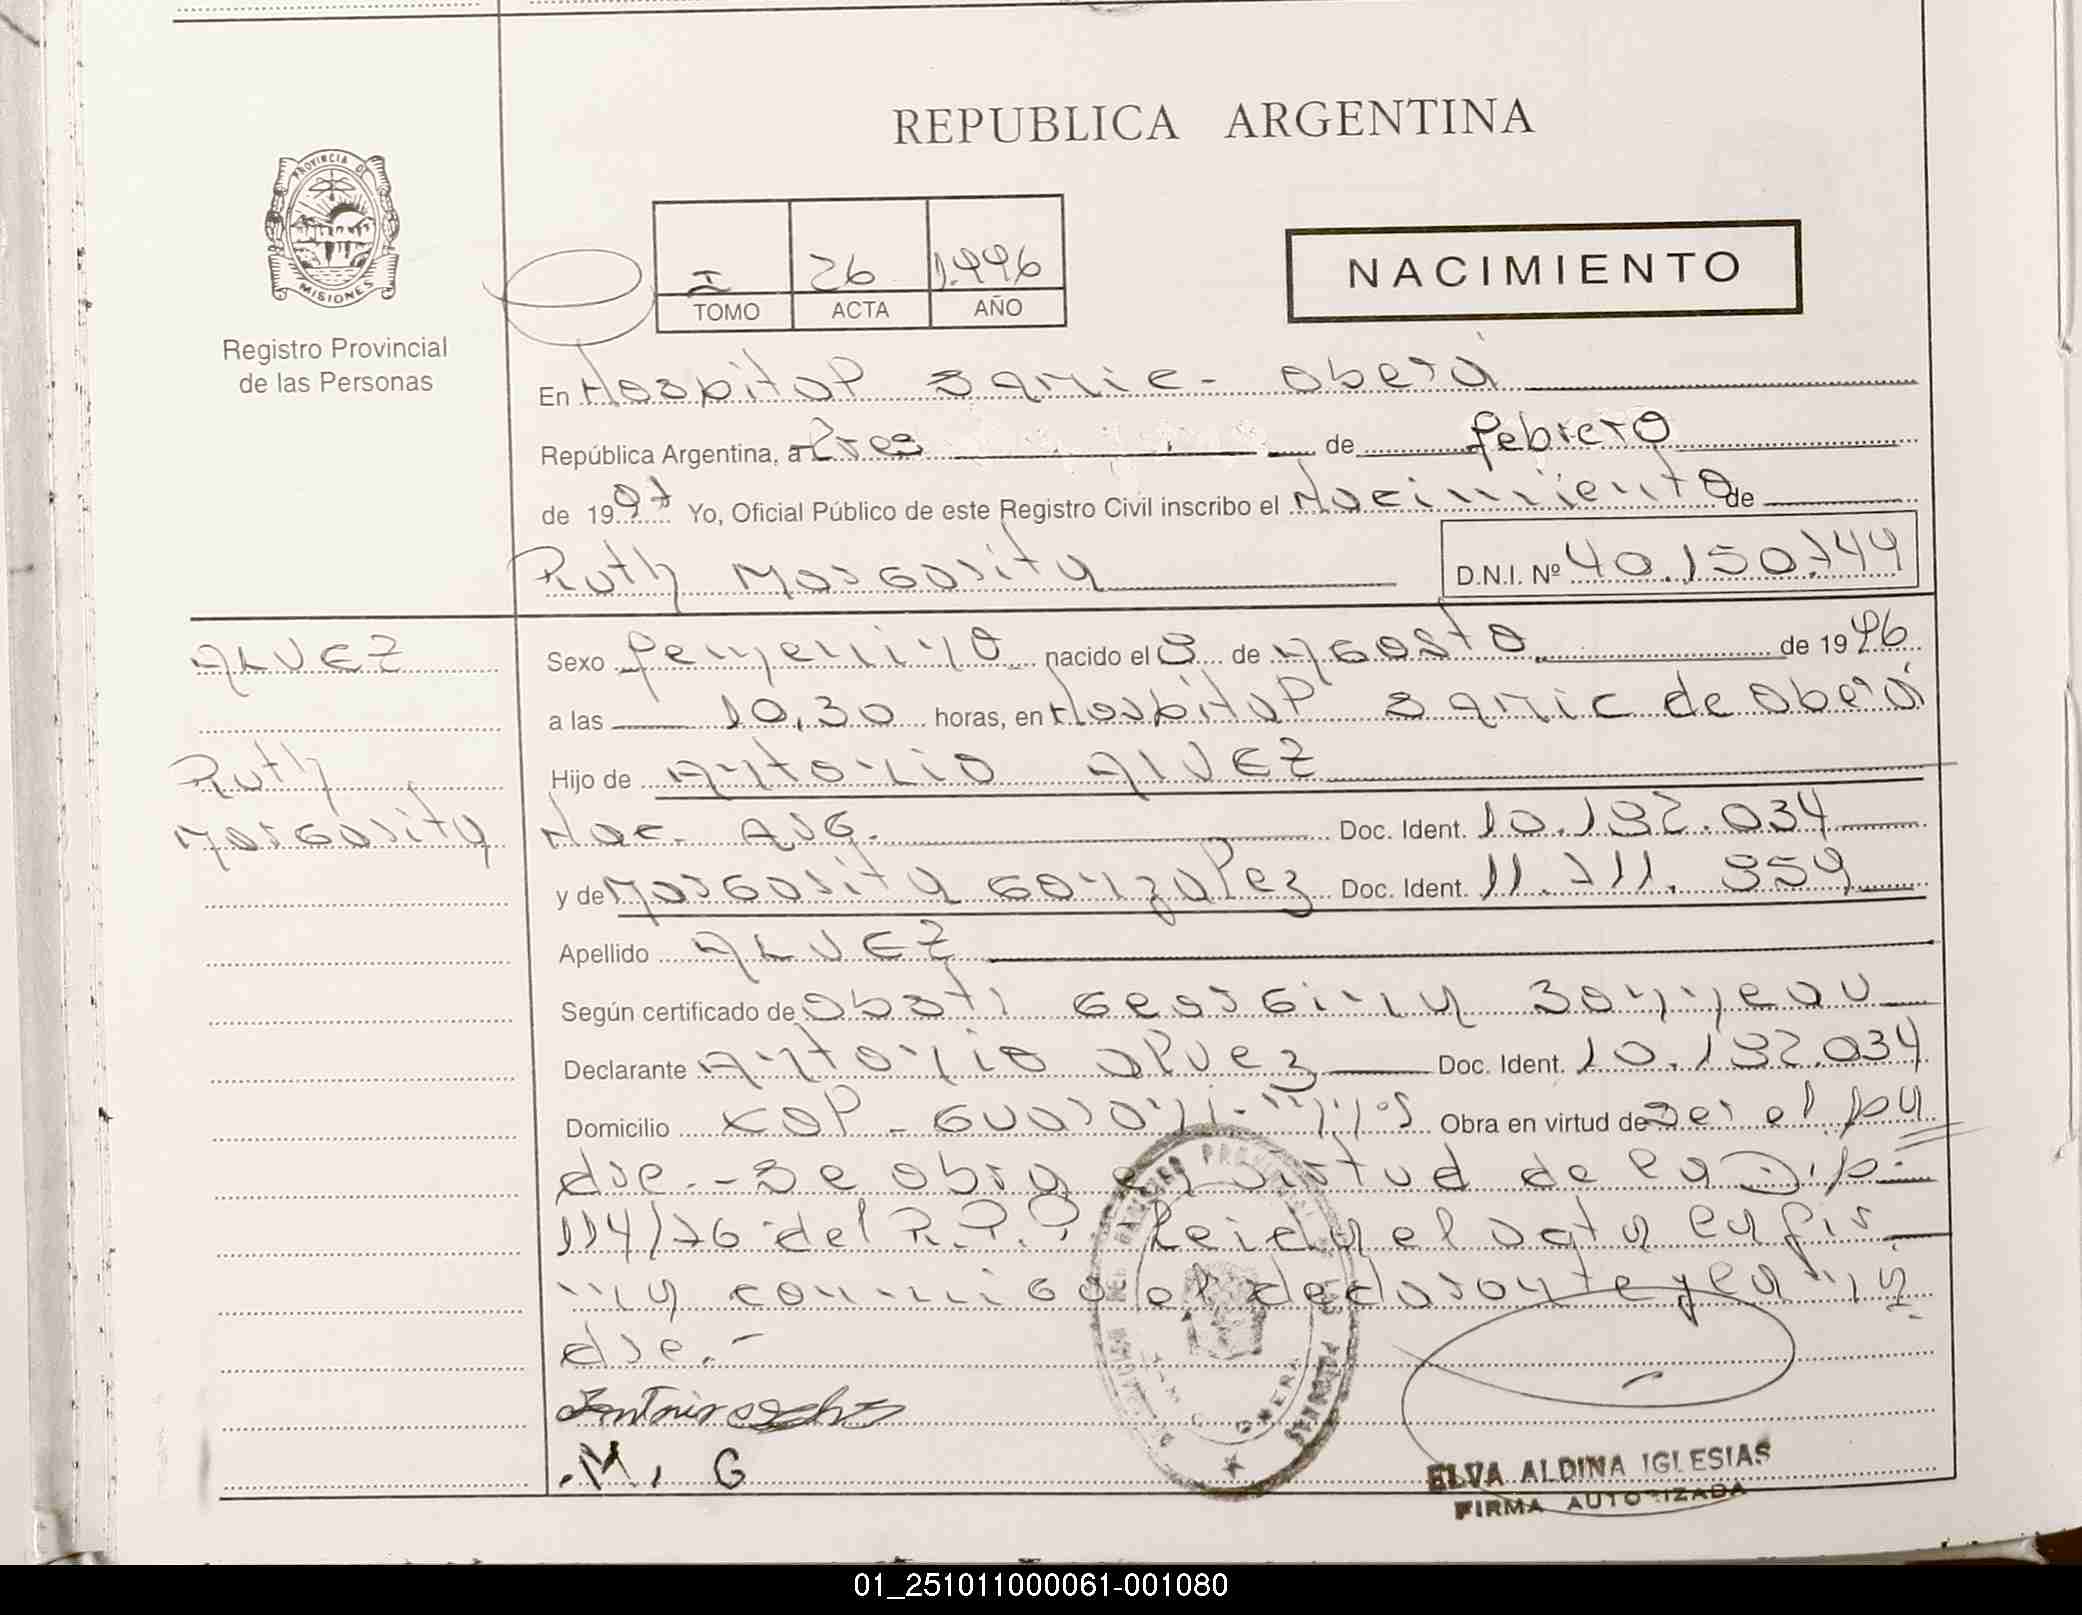 REPUBLICA ARGENTINA
PROVINCIA DE
MISIONES
Registro Provincial
de las Personas
I 26 1.996
TOMO ACTA AÑO
NACIMIENTO
En Hospital Samic - Oberá
República Argentina, a tres de febrero
de 1997 Yo, Oficial Público de este Registro Civil inscribo el Nacimiento de
Ruth Margarita D.N.I. Nº 40.150.744
ALVEZ
Sexo femenino nacido el 8 de Agosto de 1996
a las 10,30 horas, en Hospital Samic de Oberá
Ruth
Hijo de Antonio AlVEZ
Margarita
Nac. Arg. Doc. Ident. 10.192.034
y de Margarita Gonzalez Doc. Ident. 11.711.959
Apellido ALVEZ
Según certificado de Obst. Georgina
Declarante Antonio Alvez Doc. Ident. 10.192.034
Domicilio Col - Guarani Obra en virtud de ser el pa
dre.- Se obra en virtud de la Disp.
114/76 del R.P.P. Leida el acta la fir
ma conmigo el declarante y la ma
dre.-
M. G
ELVA ALDINA IGLESIAS
FIRMA AUTORIZADA
01_251011000061-001080